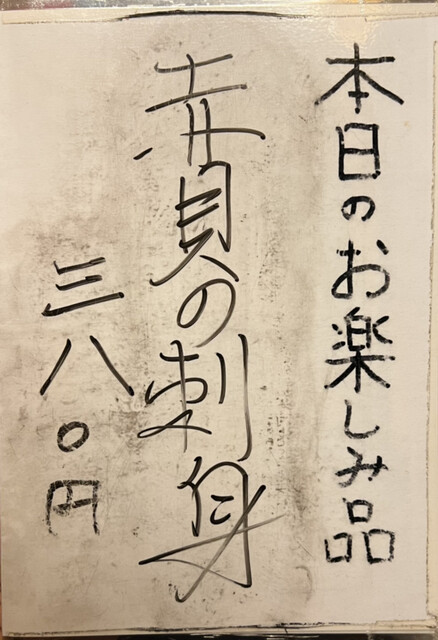 本日のお楽しみ品
赤貝の刺身
三八〇円